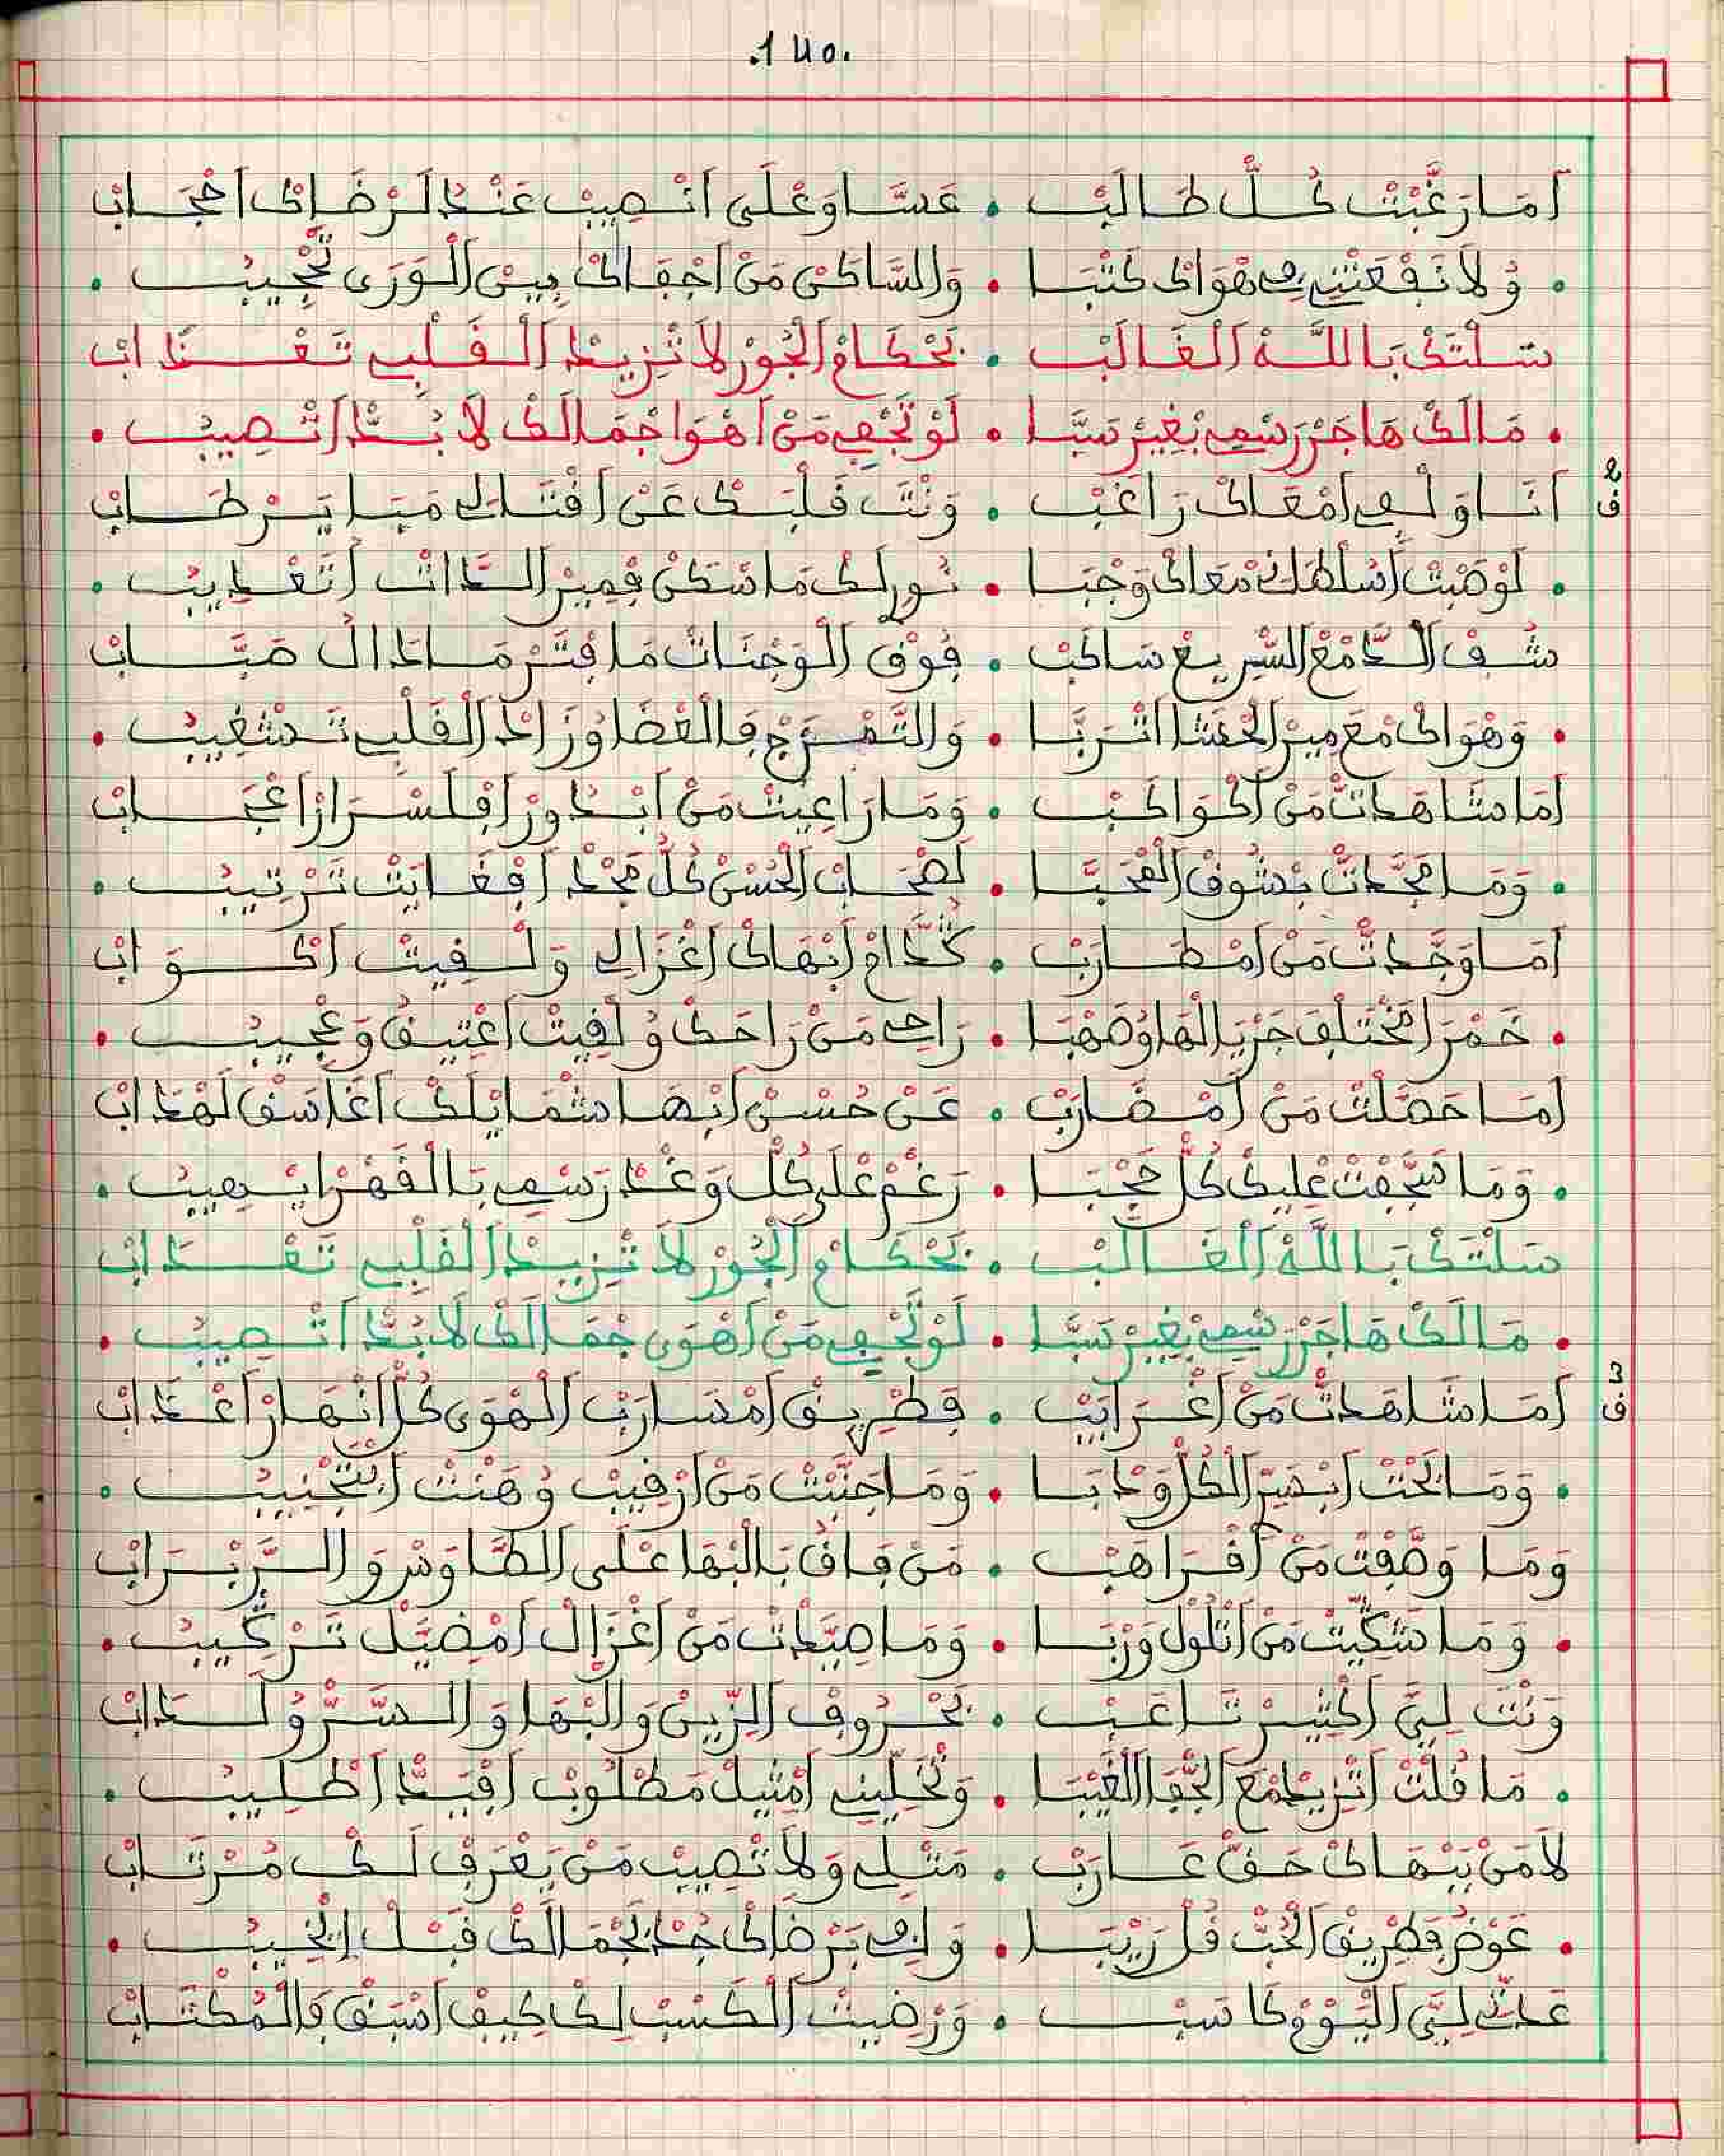 .140.
أَمَا رَغَّبْتْ كُلّْ طَالَبْ . عَسَّا وَعْلَى اَنْصِيبْ عَنْدْ لَرْضَاكْ اَحْجَابْ
. وُلاَ نَفْعَتْنِي فِي هْوَاكْ كَتْبَا . وَالسَّاكَنْ مَنْ اَجْفَاكْ بِينْ اَلْوَرَى تَّحْجِيبْ .
سَلْتَكْ بَاللَّهْ اَلْغَالَبْ . بَحْكَامْ اَلْجُورْ لاَ تْزِيدْ اَلْقَلْبِي تَعْدَابْ
. مَالَكْ هَاجَرْ رَسْمِي بْغِيرْ سَبَّا . لَوْ تَجْفِي مَنْ اَهْوَا جْمَالَكْ لاَ بُدَّ اَتْصِيبْ .
ف2 اَنَا وَلْفِي اَمْعَاكْ رَاغَبْ . وَنْتَ قَلْبَكْ عَنْ اَقْتَالِي مَبَا يَرْطَابْ
. لَوْصَبْتْ اَسْلَطَانْ مْعَاكْ وَجْبَا . نُورَلَكْ مَا سْكَنْ فِمِيرْ الدَّاتْ اَتَعْدِيبْ .
شُفْ اَلدَّمْعْ السّْرِيعْ سَاكَبْ . فُوقْ اَلْوَجْنَاتْ مَا فْتَرْ مَادَالْ صَبَّابْ
. وَهْوَاكْ مْعَ مِيرْ الْحْشَا اَتْرَبَّا . وَالتَّمْرَجْ فَالْعْضَا وُزَادْ اَلْقَلْبِي تَشْغِيبْ .
أَمَا شَاهَدْتْ مَنْ اَكْوَاكَبْ . وَمَا رَاعِيتْ مَنْ اَبْدُورْ اَفْلَسْرَارْ اَعْجَابْ
. وَمَا مَجَّدْتْ بْشُوقْ اَلْمْحَبَّا . لَصْحَابْ اَلْحُسْنْ كُلّْ مَجْدْ اَفْغَايَتْ تَرْتِيبْ .
أَمَا وَجَّدْتْ مَنْ اَمْطَارَبْ . كُدَّامْ اَبْهَاكْ اَغْزَالِي وَلْفِيتْ اَكْوَابْ
. خَمْرَ اَمْخْتَلْفَ جَرْيَالْهَا وُصَهْبَا . رَاحِي مَنْ رَاحَكْ وُلْفِيتْ اَعْتِيقْ وَعْجِيبْ .
أَمَا حَصَّلْتْ مَنْ اَمْضَارَبْ . عَنْ حُسْنْ اَبْهَا شْمَايْلَكْ اَغَاسَقْ لَهْدَابْ
. وَمَا سَجَّفْتْ عْلِيكْ كُلّْ حُجْبَا . رَغْمْ عْلَى كُلّْ وَغْدْ رَسْمِي بَالْقَهْرْ اِيْهِيبْ .
سَلْتَكْ بَاللَّهْ اَلْغَالَبْ . بَحْكَامْ اَلْجُورْ لاَ تْزِيدْ اَلْقَلْبِي تَعْدَابْ
. مَالَكْ هَاجَرْ رَسْمِي بْغِيرْ سَبَّا . لَوْ تَّجْفِي مَنْ اَهْوَى جْمَالَكْ لاَ بُدَّ اَتْصِيبْ .
ف3 أَمَا شَاهَدْتْ مَنْ اَغْرَايَبْ . فَطْرِيقْ اَمْسَارَبْ اَلْهْوَى كُلّْ اَنْهَارْ اَعْدَابْ
. وَمَا بَحْتْ اَبْسَرّْ اَلْكُلّْ وَدْبَا . وَمَا جَنَّبْتْ مَنْ اَرْقِيبْ وُهَنْتْ اَبْتَجْنِيبْ .
وَمَا وَصَّفْتْ مَنْ اَفْرَاهَبْ . مَنْ فَاقْ بَالْبْهَا عْلَى اَلطَّاوَسْ وَالرَّبْرَابْ
. وَمَا شَكِّيتْ مَنْ اَتْلُولْ وَرْبَا . وَمَا صِيَّدْتْ مَنْ اَغْزَالْ اَمْضَيَّلْ تَرْكِيبْ .
وَنْتَ لِيَّ اَكْتِيرْ تَاعَبْ . بَحْرُوفْ اَلزِّينْ وَالْبْهَا وَالسَّرّْ وُلَدَابْ
. مَا قُلْتْ اَتْزِيدْ مْعَ اَلجّْفَا اَلْغَيْبَا . وَتْخَلِّينِي اَمْتِيلْ مَطْلُوبْ اَفْيَدّْ اَطْلِيبْ .
لاَ مَنْ بَبْهَاكْ حَقّْ عَارَبْ . مَتْلِي وَلاَ تْصِيبْ مَنْ يَعْرَفْ لَكْ مُرْتَابْ
. عَوْضْ فَطْرِيقْ اَلْحُبّْ قُلْ رَيْبَا . وَلِفِي بَرْضَاكْ جُدْ بَجْمَالَكْ قَبْلْ اِيْخِيبْ .
عَدْتِّ لِيَّ اَلْيَوْمْ كَاسَبْ . وَرْضِيتْ اَلْكَسْبْ لِكْ كِيفْ اَسْبَقْ فَالْمُكْتَابْ